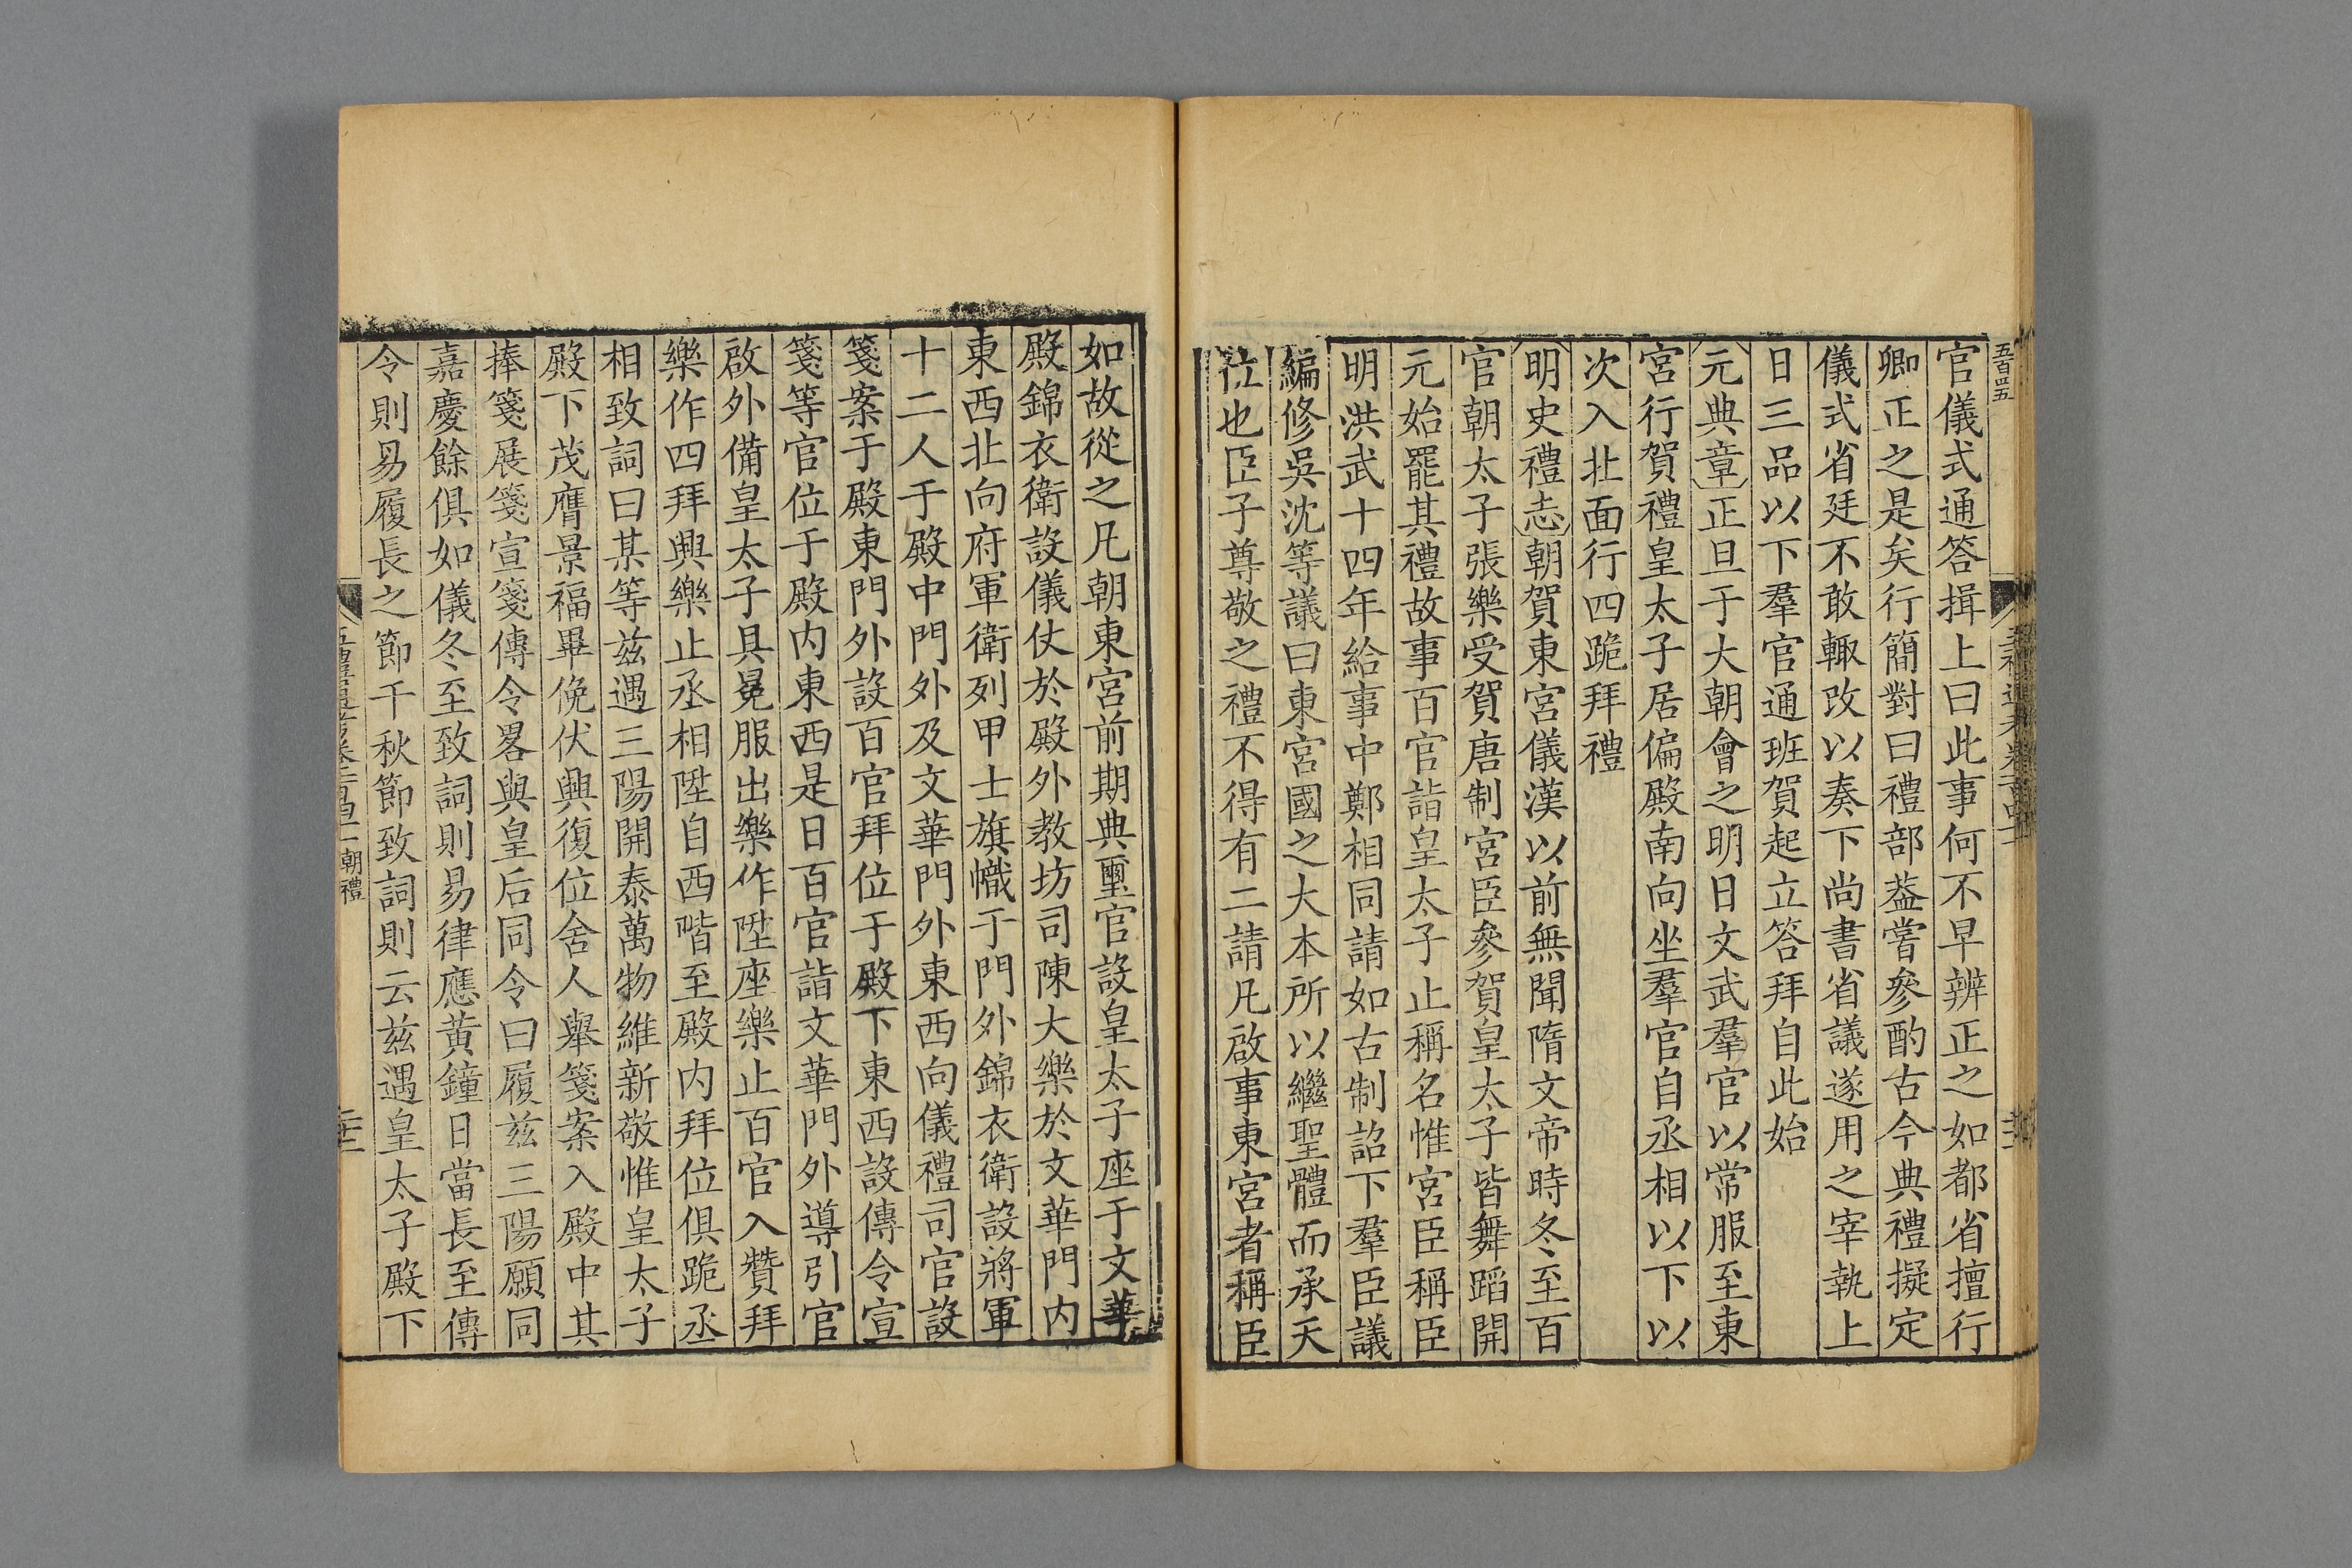 官儀式通答揖上曰此事何不早辨正之如都省擅行
卿正之是矣行簡對曰禮部葢嘗參酌古今典禮擬定
儀式省廷不敢輙改以奏下尚書省議遂用之宰執上
日三品以下羣官通班賀起立答拜自此始
元典章正旦于大朝會之明日文武羣官以常服至東
宮行賀禮皇太子居偏殿南向坐羣官自丞相以下以
次入北面行四跪拜禮
明史禮志朝賀東宮儀漢以前無聞隋文帝時冬至百
官朝太子張樂受賀唐制宮臣參賀皇太子皆舞蹈開
元始罷其禮故事百官詣皇太子止稱名惟宮臣稱臣
明洪武十四年給事中鄭相同請如古制詔下羣臣議
編修吳沈等議曰東宮國之大本所以繼聖體而承天
位也臣子尊敬之禮不得有二請凡啟事東宮者稱臣
如故從之凡朝東宮前期典璽官設皇太子座于文華
殿錦衣衛設儀仗於殿外教坊司陳大樂於文華門内
東西北向府軍衛列甲士旗幟于門外錦衣衛設將軍
十二人于殿中門外及文華門外東西向儀禮司官設
箋案于殿東門外設百官拜位于殿下東西設傳令宣
箋等官位于殿内東西是日百官詣文華門外導引官
啟外備皇太子具冕服出樂作陞座樂止百官入贊拜
樂作四拜興樂止丞相陞自西階至殿内拜位俱跪丞
相致詞曰某等兹遇三陽開泰萬物維新敬惟皇太子
殿下茂膺景福畢俛伏興復位舍人舉箋案入殿中其
捧箋展箋宣箋傳令畧與皇后同令曰履兹三陽願同
嘉慶餘俱如儀冬至致詞則易律應黃鐘日當長至傳
令則易履長之節千秋節致詞則云兹遇皇太子殿下
朝禮